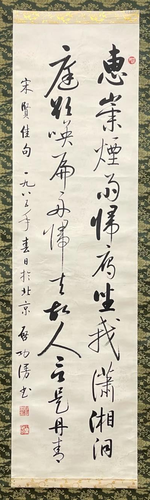 惠崇煙雨歸雁坐我瀟湘洞
庭欲喚扁舟歸去故人言是丹青
宋賢佳句 一九八三年春日於北京 啟功漫書